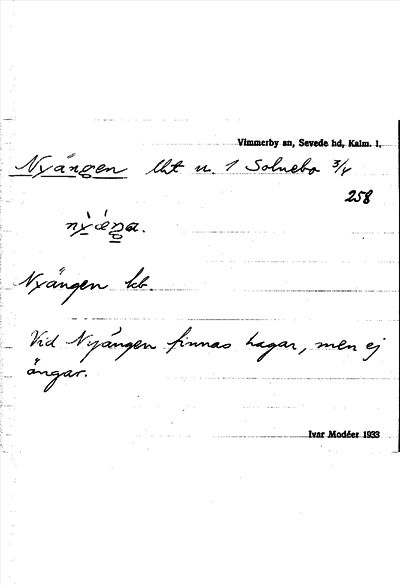 Vimmerby sn, Sevede hd, Kalm. l.
Nyängen lht u. 1 Solnebo 3/4
258
Nyängen kb.
Vid Nyängen finnas hagar, men ej
ängar.
Ivar Modéer 1933